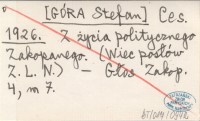 [GÓRA Stefan] Ces.
1926. Z życia politycznego
Zakopanego. (Wiec posłów
Z. L. N.) – Głos Zakop.
4, nr 7.